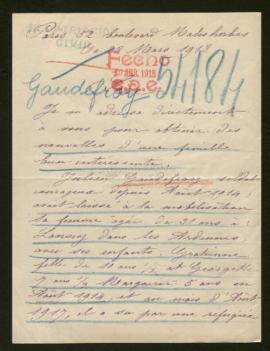 Paris 52 Boulevard Malesherbes
le 28 Mars 1918
Fecho
ABR. 1918
Gaudefroy 54184
Je m adresse directement
à vous pour obtenir des
nouvelles d'une famille
bien intéressante.
Julien Gaudefroy soldat
courageux depuis Août 1914
avait laissé à la mobilisation
sa femme agée de 31 ans à
dans les Ardennes
avec ses enfants:
fille de 10 ans 1/2 et Georgette
7 ans 1/2 5 ans en
Août 1914, et au mois d'Août
1917, il a su par une refugiée